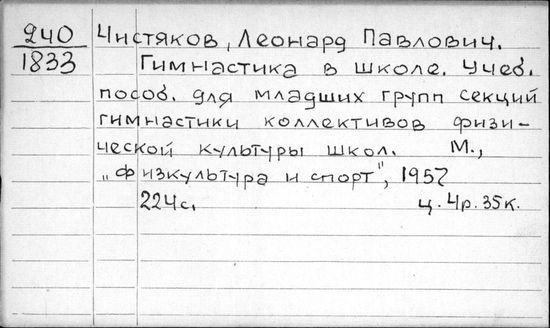 240
1833
Чистяков, Леонард Павлович.
Гимнастика в школе. Учеб.
пособ. для младших групп секций
гимнастики коллективов физи-
ческой культуры школ. М.,
„Физкультура и спорт", 1957
224с. ц. 4р. 35к.